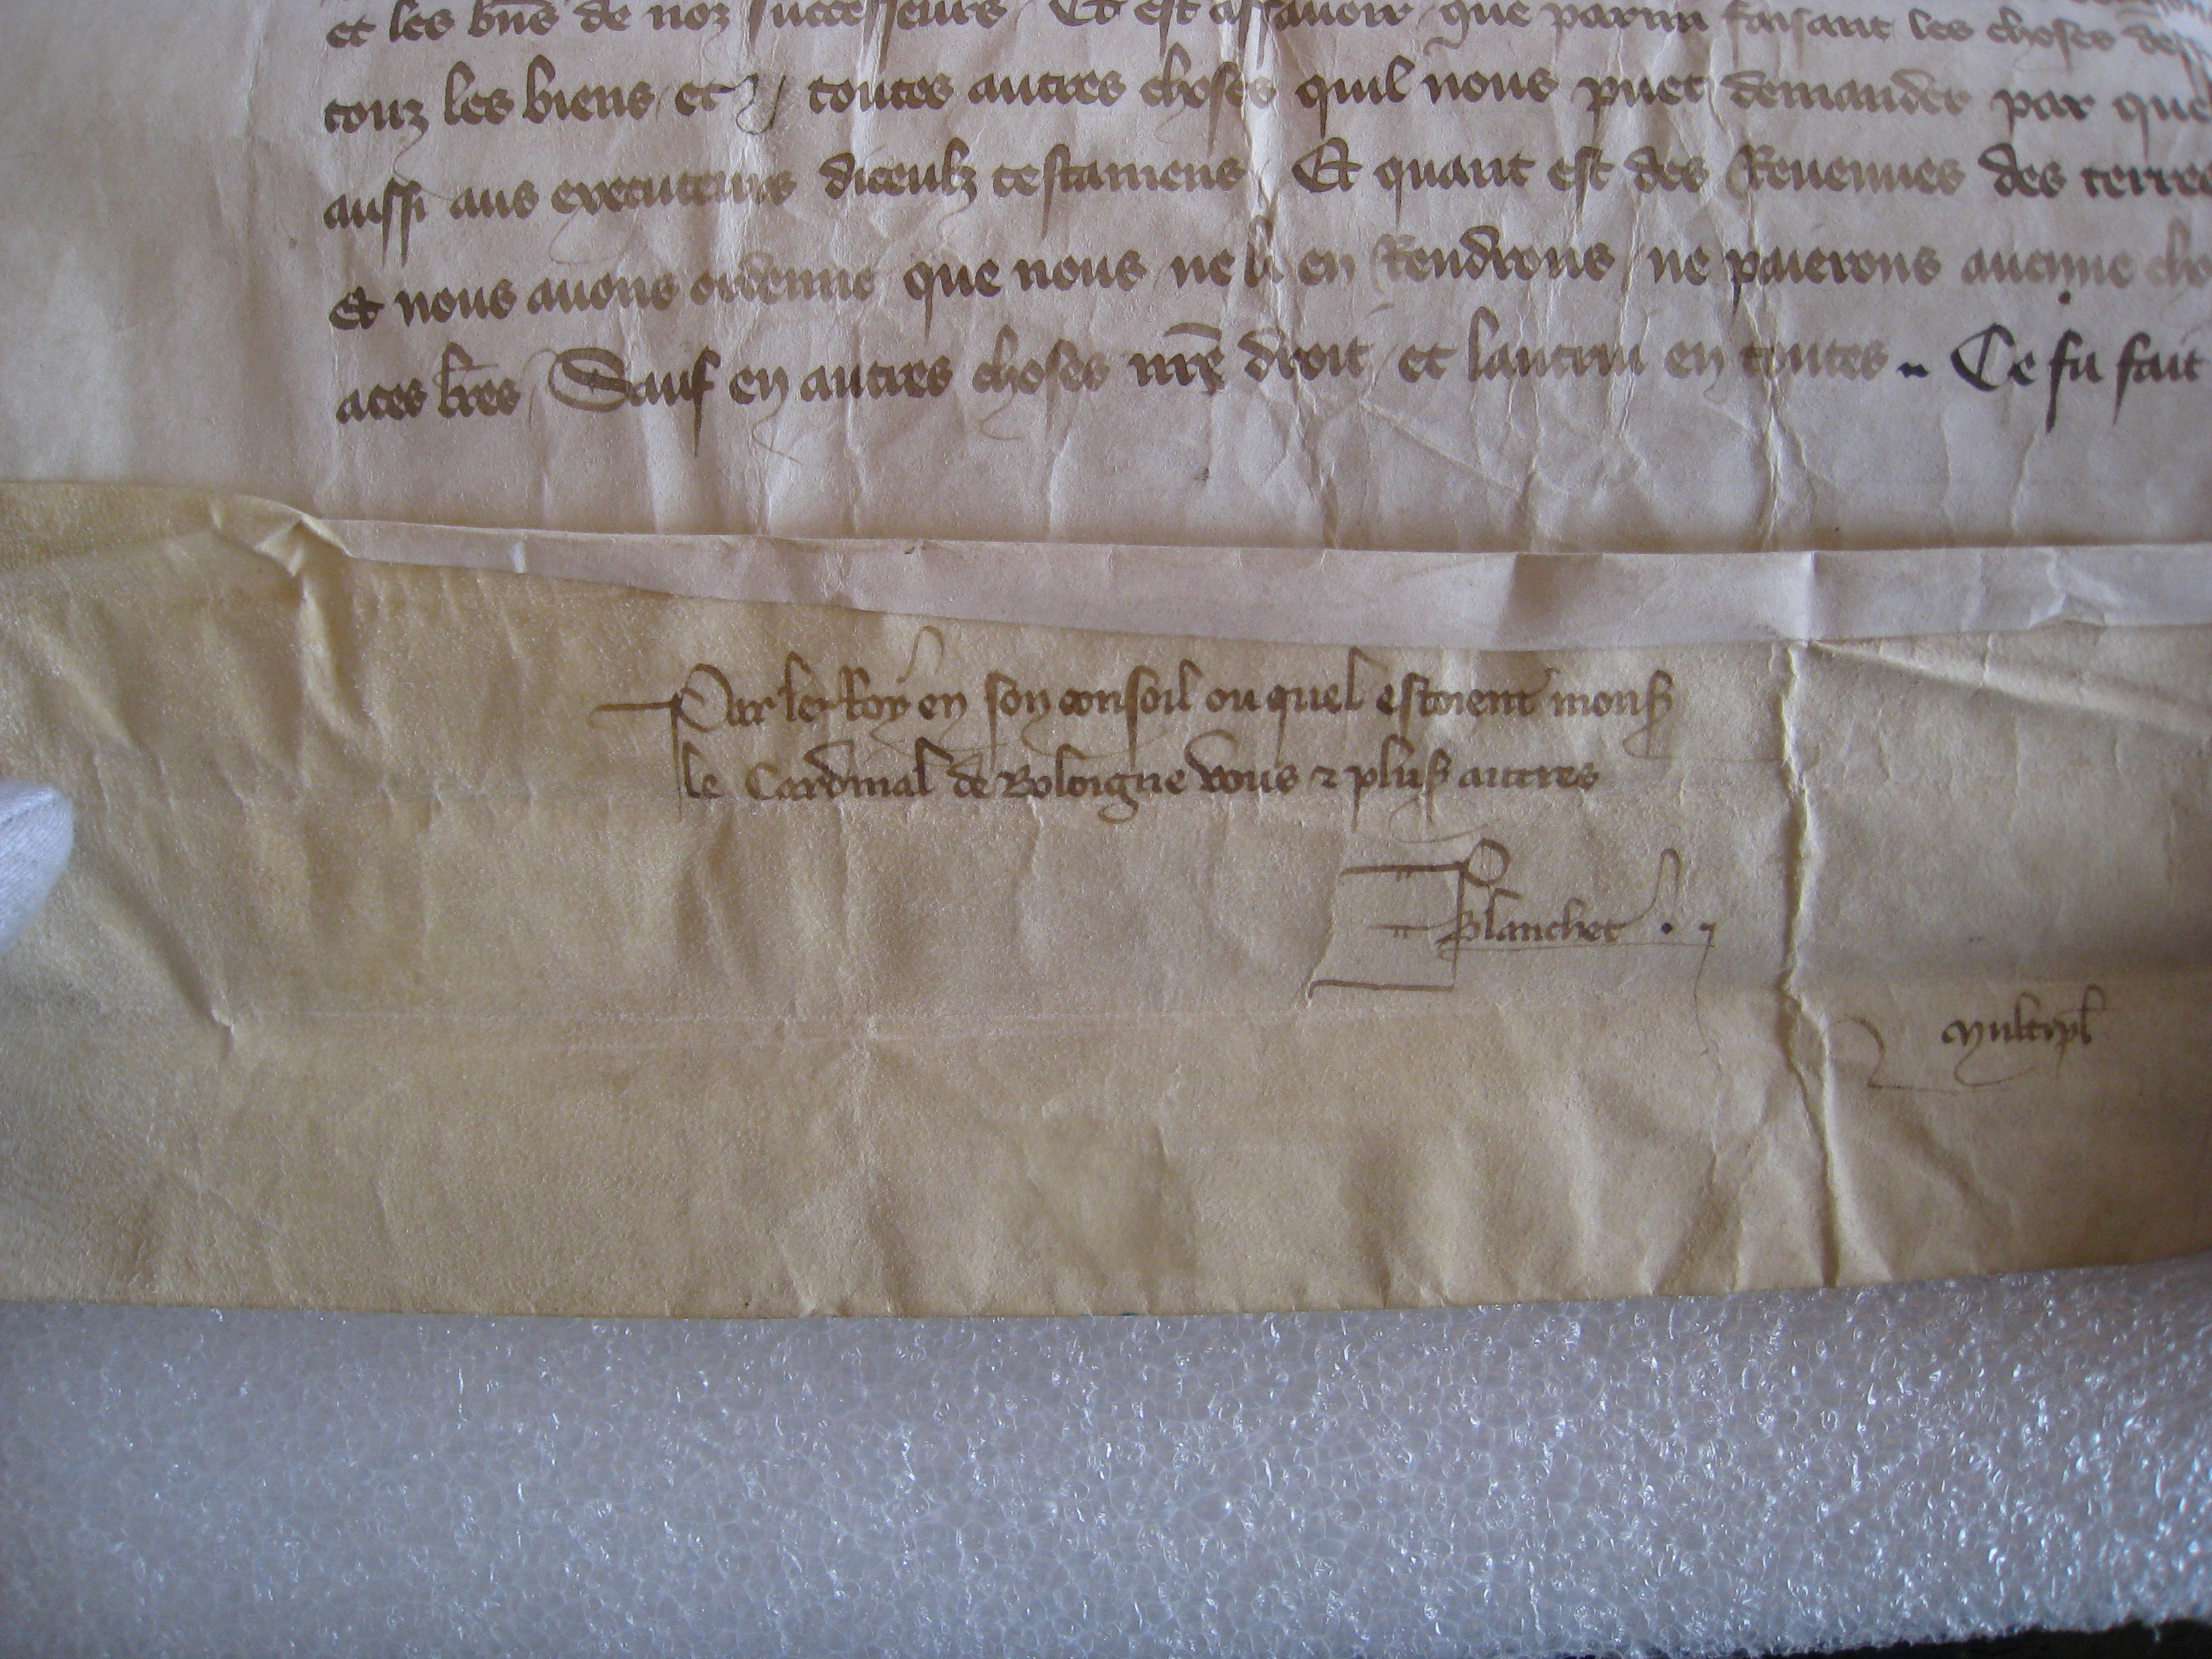 et les bn̄s de noz successeurs / Et est assavoir que parmi faisant les choses dess
touz les biens et toutes autres choses quil nous puet demander par que
aussi aus executeurs diceulz testamens / Et quant est des Revenues des terres
Et nous avons ordenne que nous ne li en Rendrons / ne paierons aucune cho
a ces lr̄es / Sauf en autres choses nr̄e droit et lautrui en toutes .. Ce fu fait
Par le Roy en son conseil ou quel estoient mons
le Cardinal de Boloigne vous & plus autres
Blanchet
multipl